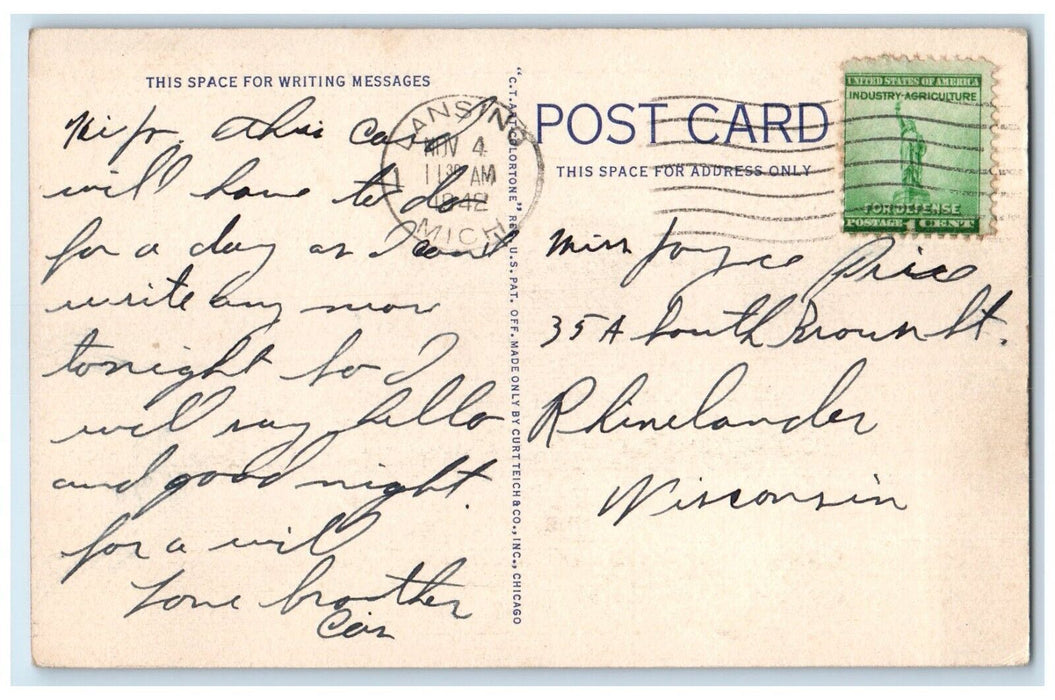 THIS SPACE FOR WRITING MESSAGES
this card
will have to do
for a day as I cant
write any more
tonight so I
will say hello
and good night.
for a wil
Love brother
"C.T. ART-COLORTONE" REG. U.S. PAT. OFF. MADE ONLY BY CURT TEICH & CO., INC., CHICAGO
LANSING
NOV 4
11 30 AM
1942
MICH
POST CARD
THIS SPACE FOR ADDRESS ONLY
UNITED STATES OF AMERICA
INDUSTRY-AGRICULTURE
FOR DEFENSE
POSTAGE 1 CENT
Miss Joyce Price
35A South Brown St.
Rhinelander
Wisconsin